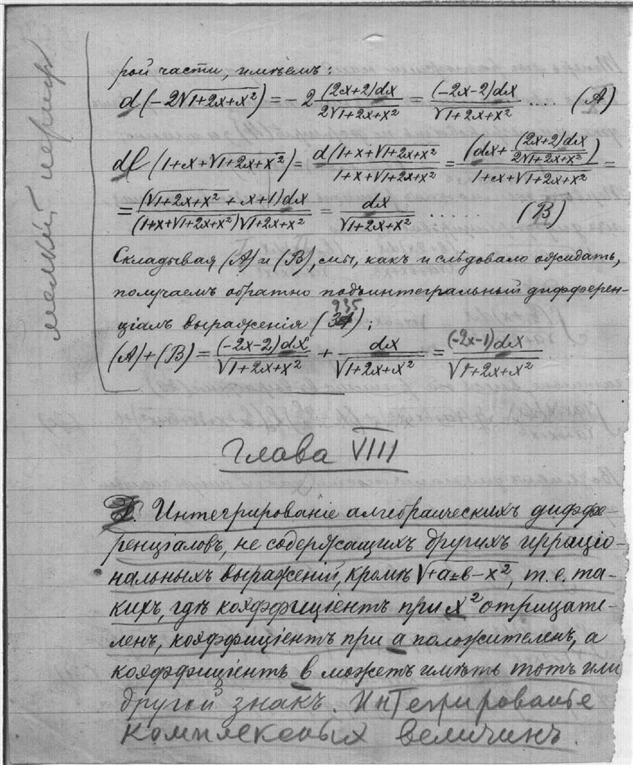 мелкий шрифт
рой части, имѣемъ:
d(-2√1+2x+x²) = -2 (2x+2)dx / 2√1+2x+x² = (-2x-2)dx / √1+2x+x² .... (A)
dl(1+x+√1+2x+x²) = d(1+x+√1+2x+x²) / 1+x+√1+2x+x² = (dx + (2x+2)dx / 2√1+2x+x²) / 1+x+√1+2x+x² =
= (√1+2x+x² + x+1)dx / (1+x+√1+2x+x²)√1+2x+x² = dx / √1+2x+x² ...... (B)
Складывая (A) и (B), мы, какъ и слѣдовало ожидать,
получаемъ обратно подъинтегральный дифферен-
ціалъ выраженія (935);
(A)+(B) = (-2x-2)dx / √1+2x+x² + dx / √1+2x+x² = (-2x-1)dx / √1+2x+x²
Глава VIII
Интегрированіе алгебраическихъ диффе-
ренціаловъ, не содержащихъ другихъ ирраціо-
нальныхъ выраженій, кромѣ √+a±b-x², т.е. та-
кихъ, гдѣ коэффиціентъ при x² отрицате-
ленъ, коэффиціентъ при a положителенъ, а
коэффиціентъ b можетъ имѣть тотъ или
другой знакъ. Интегрированіе
комплексныхъ величинъ.